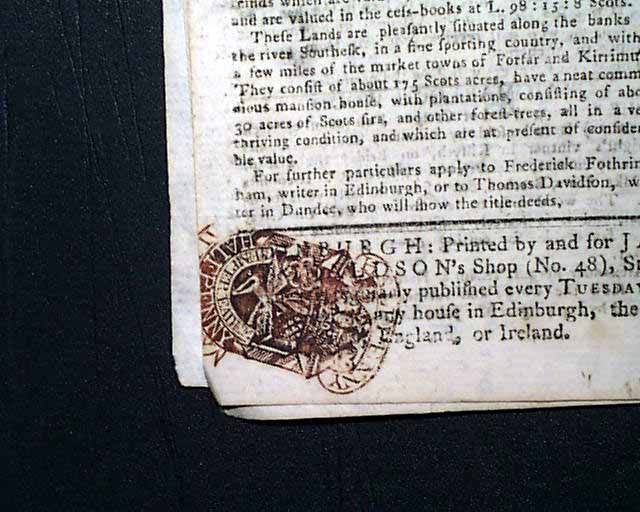 and are valued in the ceſs-books at L. 98 : 15 : 8 Scots.
Theſe Lands are pleaſantly ſituated along the banks
the river Southeſk, in a fine ſporting country, and with
a few miles of the market towns of Forfar and Kirrimu
They conſiſt of about 175 Scots acres, have a neat comm
dious manſion-houſe, with plantations, conſiſting of abo
30 acres of Scots firs, and other foreſt-trees, all in a ve
thriving condition, and which are at preſent of conſider
ble value.
For further particulars apply to Frederick Fothrin
ham, writer in Edinburgh, or to Thomas Davidſon, w
ter in Dundee, who will ſhow the title-deeds.
NBURGH: Printed by and for J. A
LDSON's Shop (No. 48), S
publiſhed every TUESDAY
houſe in Edinburgh, the
England, or Ireland.
HALFPENNY